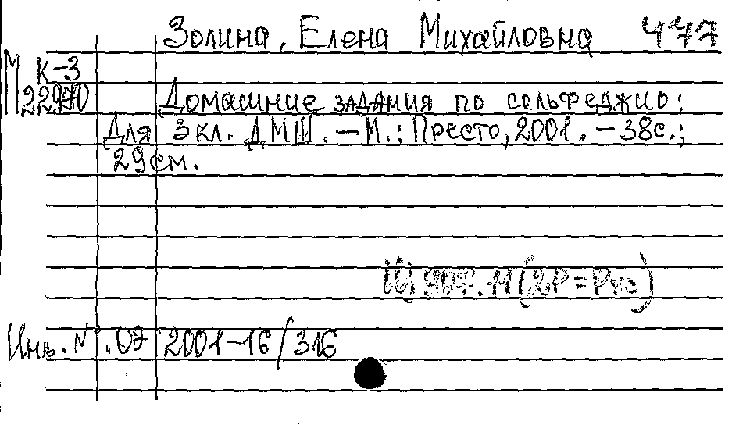 Золина, Елена Михайловна 477
М К-3
Домашние задания по сольфеджио:
Для 3 кл. ДМШ. – М.: Престо, 2001. – 38с.;
29см.
Инв. N. 07 2001-16/316